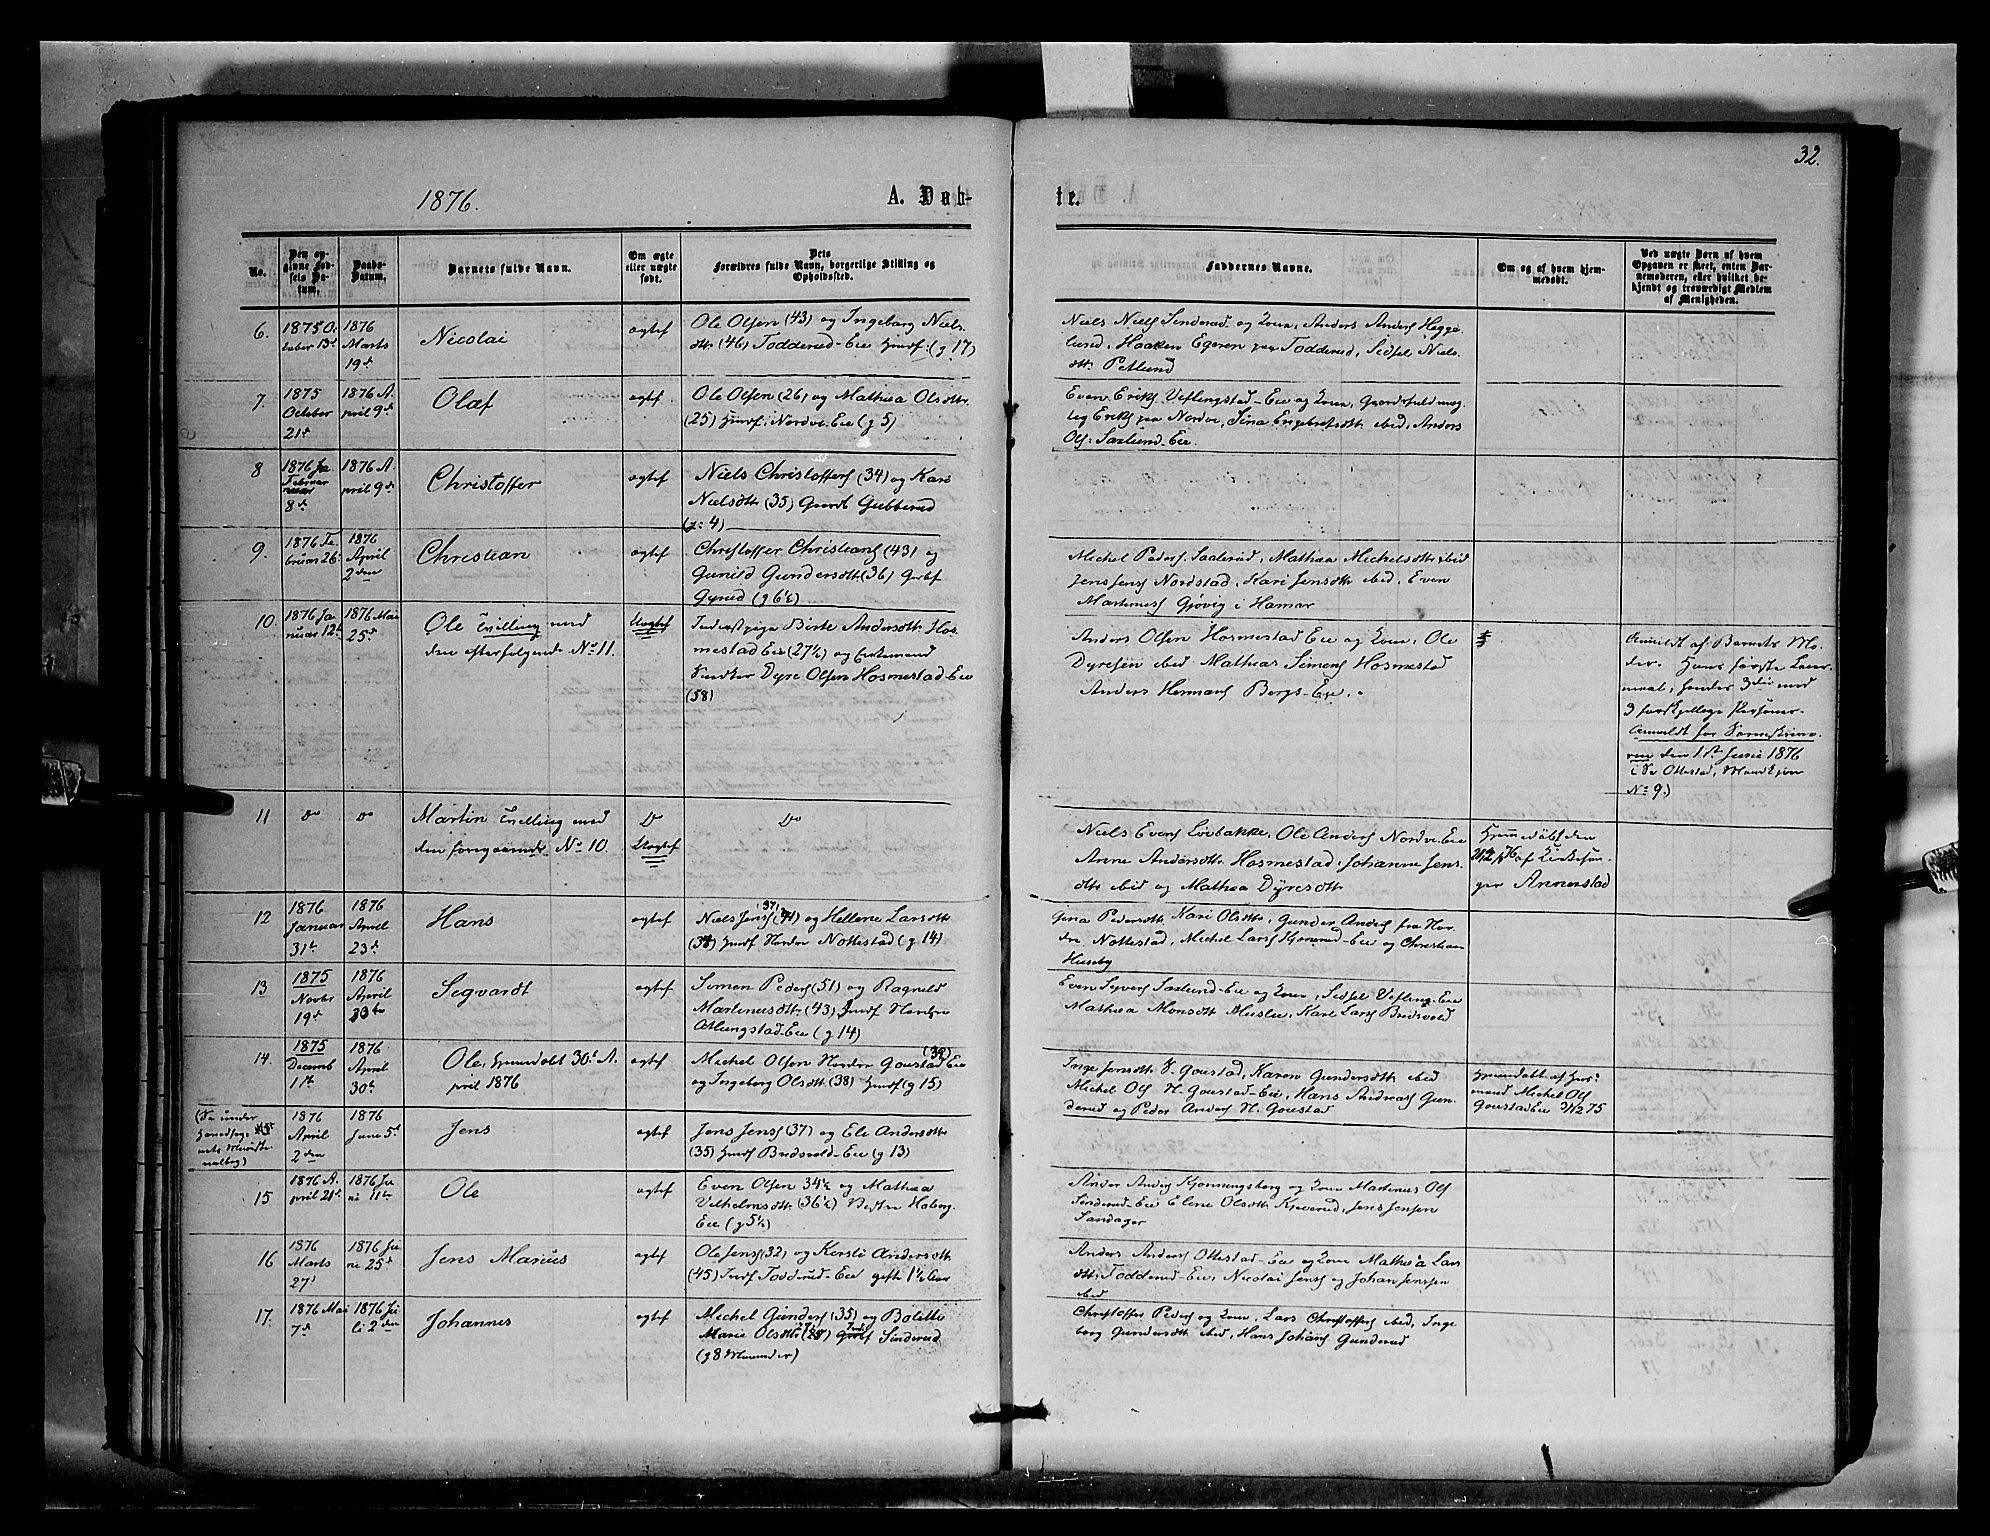 32.
1876.
A. Døb-
te.
No.
Den op-
givne Fød-
sels Da-
tum.
Daabs-
Datum.
Barnets fulde Navn.
Om ægte
eller uægte
født.
Dets
Forældres fulde Navn, borgerlige Stilling og
Opholdssted.
Faddernes Navne.
Om og af hvem hjem-
medøbt.
Ved uægte Børn af hvem
Opgaven er skeet, enten Bar-
nemoderen, eller hvilket be-
kjendt og troværdigt Medlem
af Menigheden.
6.
1875 O.
tober 13d
1876
Marts
19d
Nicolai
ægtef
Ole Olsen (43) og Ingeborg Niels-
dtr (46) Todderud-Eie Hmdf: (g 17)
Niels Niels Sinderud og Kone, Anders Anders Hegge-
lund, Haaken Egeren paa Todderud, Sidsel Niels-
dtr. Petlund
7.
1875
October
21d
1876 A.
pril 9d
Olaf
ægtef.
Ole Olsen (26) og Mathea Olsdtr.
(25) Hmdf: Nordve-Eie (g 5)
Even Eriks. Veflingstad-Eie og Kone, Gaardsfuldmæg-
tig Eriks paa Nordve, Sina Engebretsdtr ibid, Anders
Ols: Saxlund-Eie.
8
1876 Ja
Februar
nuar
8d
1876 A.
pril 9d
Christoffer
ægtef
Niels Christoffers (34) og Kari
Nielsdtr (35) Gaardb Gubberud
(g: 4)
9.
1876 Fe
bruar 26.
1876
April
2den
Christian
ægtef
Christoffer Christians (43) og
Gunild Gundersdtr (36) Gbrf
Gyrud (g 6½)
Michel Peders. Saxlerud, Mathea Michelsdtr ibid
Jens Jens Nordstad, Kari Jensdtr ibid, Even
Martinus Gjøvig i Hamar
10.
1876 Ja
nuar 12t
1876 Mai
25d
Ole Tvilling med
den efterfølgende No 11.
Uægtef
Inderstpige Birte Andersdtr. Hos-
mestad Eie (27½) og Enkemand
Snedker Dyre Olsen Hosmestad-Eie
(58)
Anders Olsen Hosmestad Eie og Kone, Ole
Dyresen ibid Mathias Simens Hosmestad
Anders Hermans Bergs-Eie.
Anmeldt af Barnets Mo-
der. Hans første Leier-
maal, hendes 3die med
3 forskjellige Personer.
Anmeldt for Sorenskrive-
ren den 1st Juni 1876
(Se Ottestad, Mandkjøn
No 9.)
11
Do
Do
Martin Tvilling med
den foregaaende No 10.
Do
Uægtef
Do
Niels Evens Løvbakke, Ole Anders Nordve-Eie
Anne Andersdtr. Hosmestad, Johanne Jens-
dtr ibid og Mathea Dyresdtr.
Hjemmedøbt den
21/2 76 af Kirkesan-
ger Annerstad
12
1876
Januar
31t
1876
April
23d
Hans
ægtef
Niels Jens (41) og Hellene Larsdtr
(38) Hmdf Nordre Nottestad (g 14)
Gina Pedersdtr. Kari Olsdtr. Gunder Anders fra Nor-
dre Nottestad, Michel Lars Kjonerud-Eie og Christian
Huseby
13
1875
Novbr
19d
1876
April
23de
Segvardt
ægtef
Simen Peders (51) og Ragnild
Martinusdtr. (43) Hmdf Nordre
Atlungstad-Eie (g 14)
Even Syvers Saxlund-Eie og Kone, Sidsel Vefling-Eie
Mathea Monsdtr Huslu, Kari Lars Bredsvold
14.
1875
Decemb
11te
1876
April
30te
Ole, hjemmdøbt 30t A.
pril 1876
ægtef
Michel Olsen Nordre Goustad Eie (39)
og Ingeborg Olsdtr (38) Hmdf (g 15)
Inge Jensdtr S. Goustad, Karen Gundersdtr ibid
Michel Ols N. Goustad-Eie, Hans Andreas Gun-
derud og Peder Anders N. Goustad
Hjemdøbt af Hus-
mand Michel Ols
Goustad Eie 31/12 75
(Se under
1876
April
2den
1876
Juni 5t
Jens
ægtef
Jens Jens (37) og Eli Andersdtr
(35) Hmdf Bredsvold-Eie (g 13)
15
1876 A.
pril 21t
1876 Ju
ni 11te
Ole
ægtef
Even Olsen 34½ og Mathea
Vilhelmsdtr (36½) Vestre Hoberg-
Eie (g 5½)
Ander Anders Kjonningsberg og Kone Martinus Ols
Sinderud-Eie Elene Olsdtr Kjeverud, Jens Jensen
Sandager
16
1876
Marts
27d
1876 Ju
ni 25d
Jens Marius
ægtef
Ole Jens (32) og Kersti Andersdtr
(45) Indf Todderud-Eie gifte 1½ Aar
Anders Anders Ottestad-Eie og Kone Mathea Lars
dtr. Todderud-Eie, Nicolai Jens og Johan Jenssen
ibid
17.
1876 Mai
7d
1876 Ju
li 2den
Johannes
ægtef
Michel Gunders (35) og Bolette
Marie Olsdtr (28) Gbrf Sinderud
(g 8 Maaneder)
Christoffer Peders og Kone, Lars Christoffers ibid, Inge
borg Gundersdtr ibid, Hans Johans Gunderud